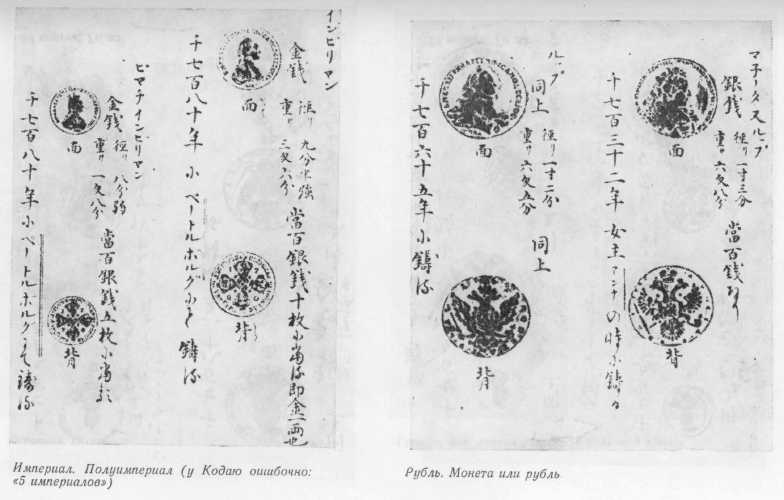 インピリマン
金錢
徑リ 九分半強
重サ 三匁六分
當百銀錢十枚ニ當ル即金一両也
面
背
千七百八十年 ニ ペートルボルグニテ 鑄ル
インピリマン
金錢
徑リ 八分弱
重サ 一匁八分
當百銀錢五枚ニ當ル
面
背
千七百八十年ニペートルボルグニテ鑄ル
Империал. Полуимпериал (у Кодаю ошибочно:
«5 империалов»)
銀錢
徑リ 一寸三分
重サ 六匁八分
當百錢ナリ
面
背
千七百三十二年女主アンナの時ニ鑄る
ルーブ
同上
徑リ 一寸二分
重サ 六匁五分
同上
面
背
千七百六十五年ニ鑄ル
Рубль. Монета или рубль